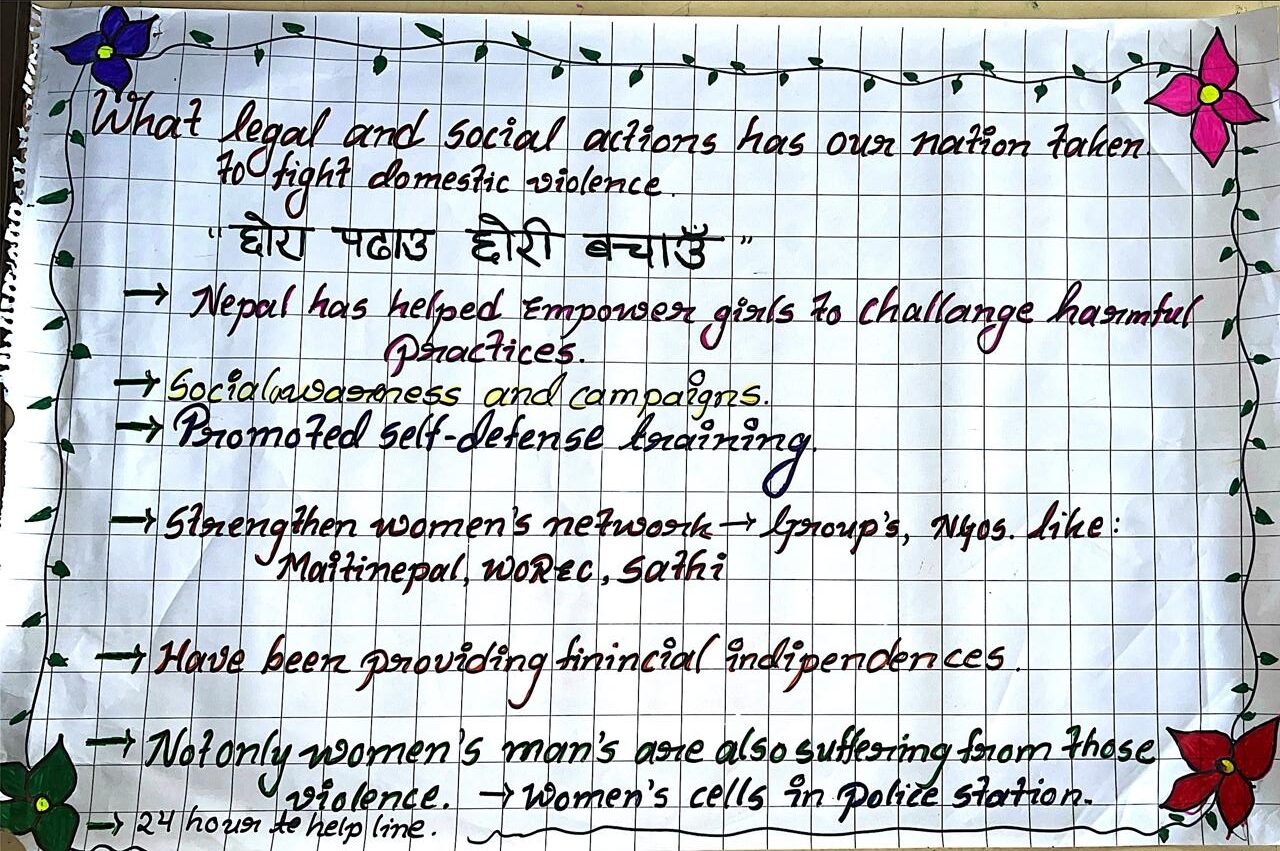 What legal and social actions has our nation taken
to fight domestic violence.
"छोरा पढाउ छोरी बचाउँ"
→ Nepal has helped Empower girls to challange harmful
practices.
→ Social awarness and campaigns.
→ Promoted self-defense training.
→ Strengthen women's network → Group's, NGOs. like:
Maitinepal, WOREC, Sathi
→ Have been providing finincial indipendences.
→ Not only women's man's are also suffering from those
violence. → Women's cells in police station.
→ 24 hour help line.